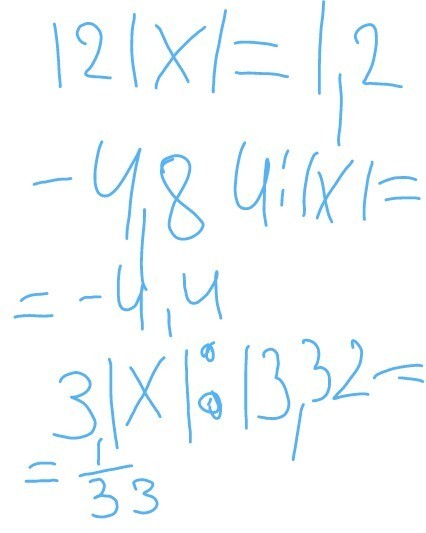 12|x|=1,2
-4,84:|x|=
=-4,4
3|x|:13,32=
=1/33